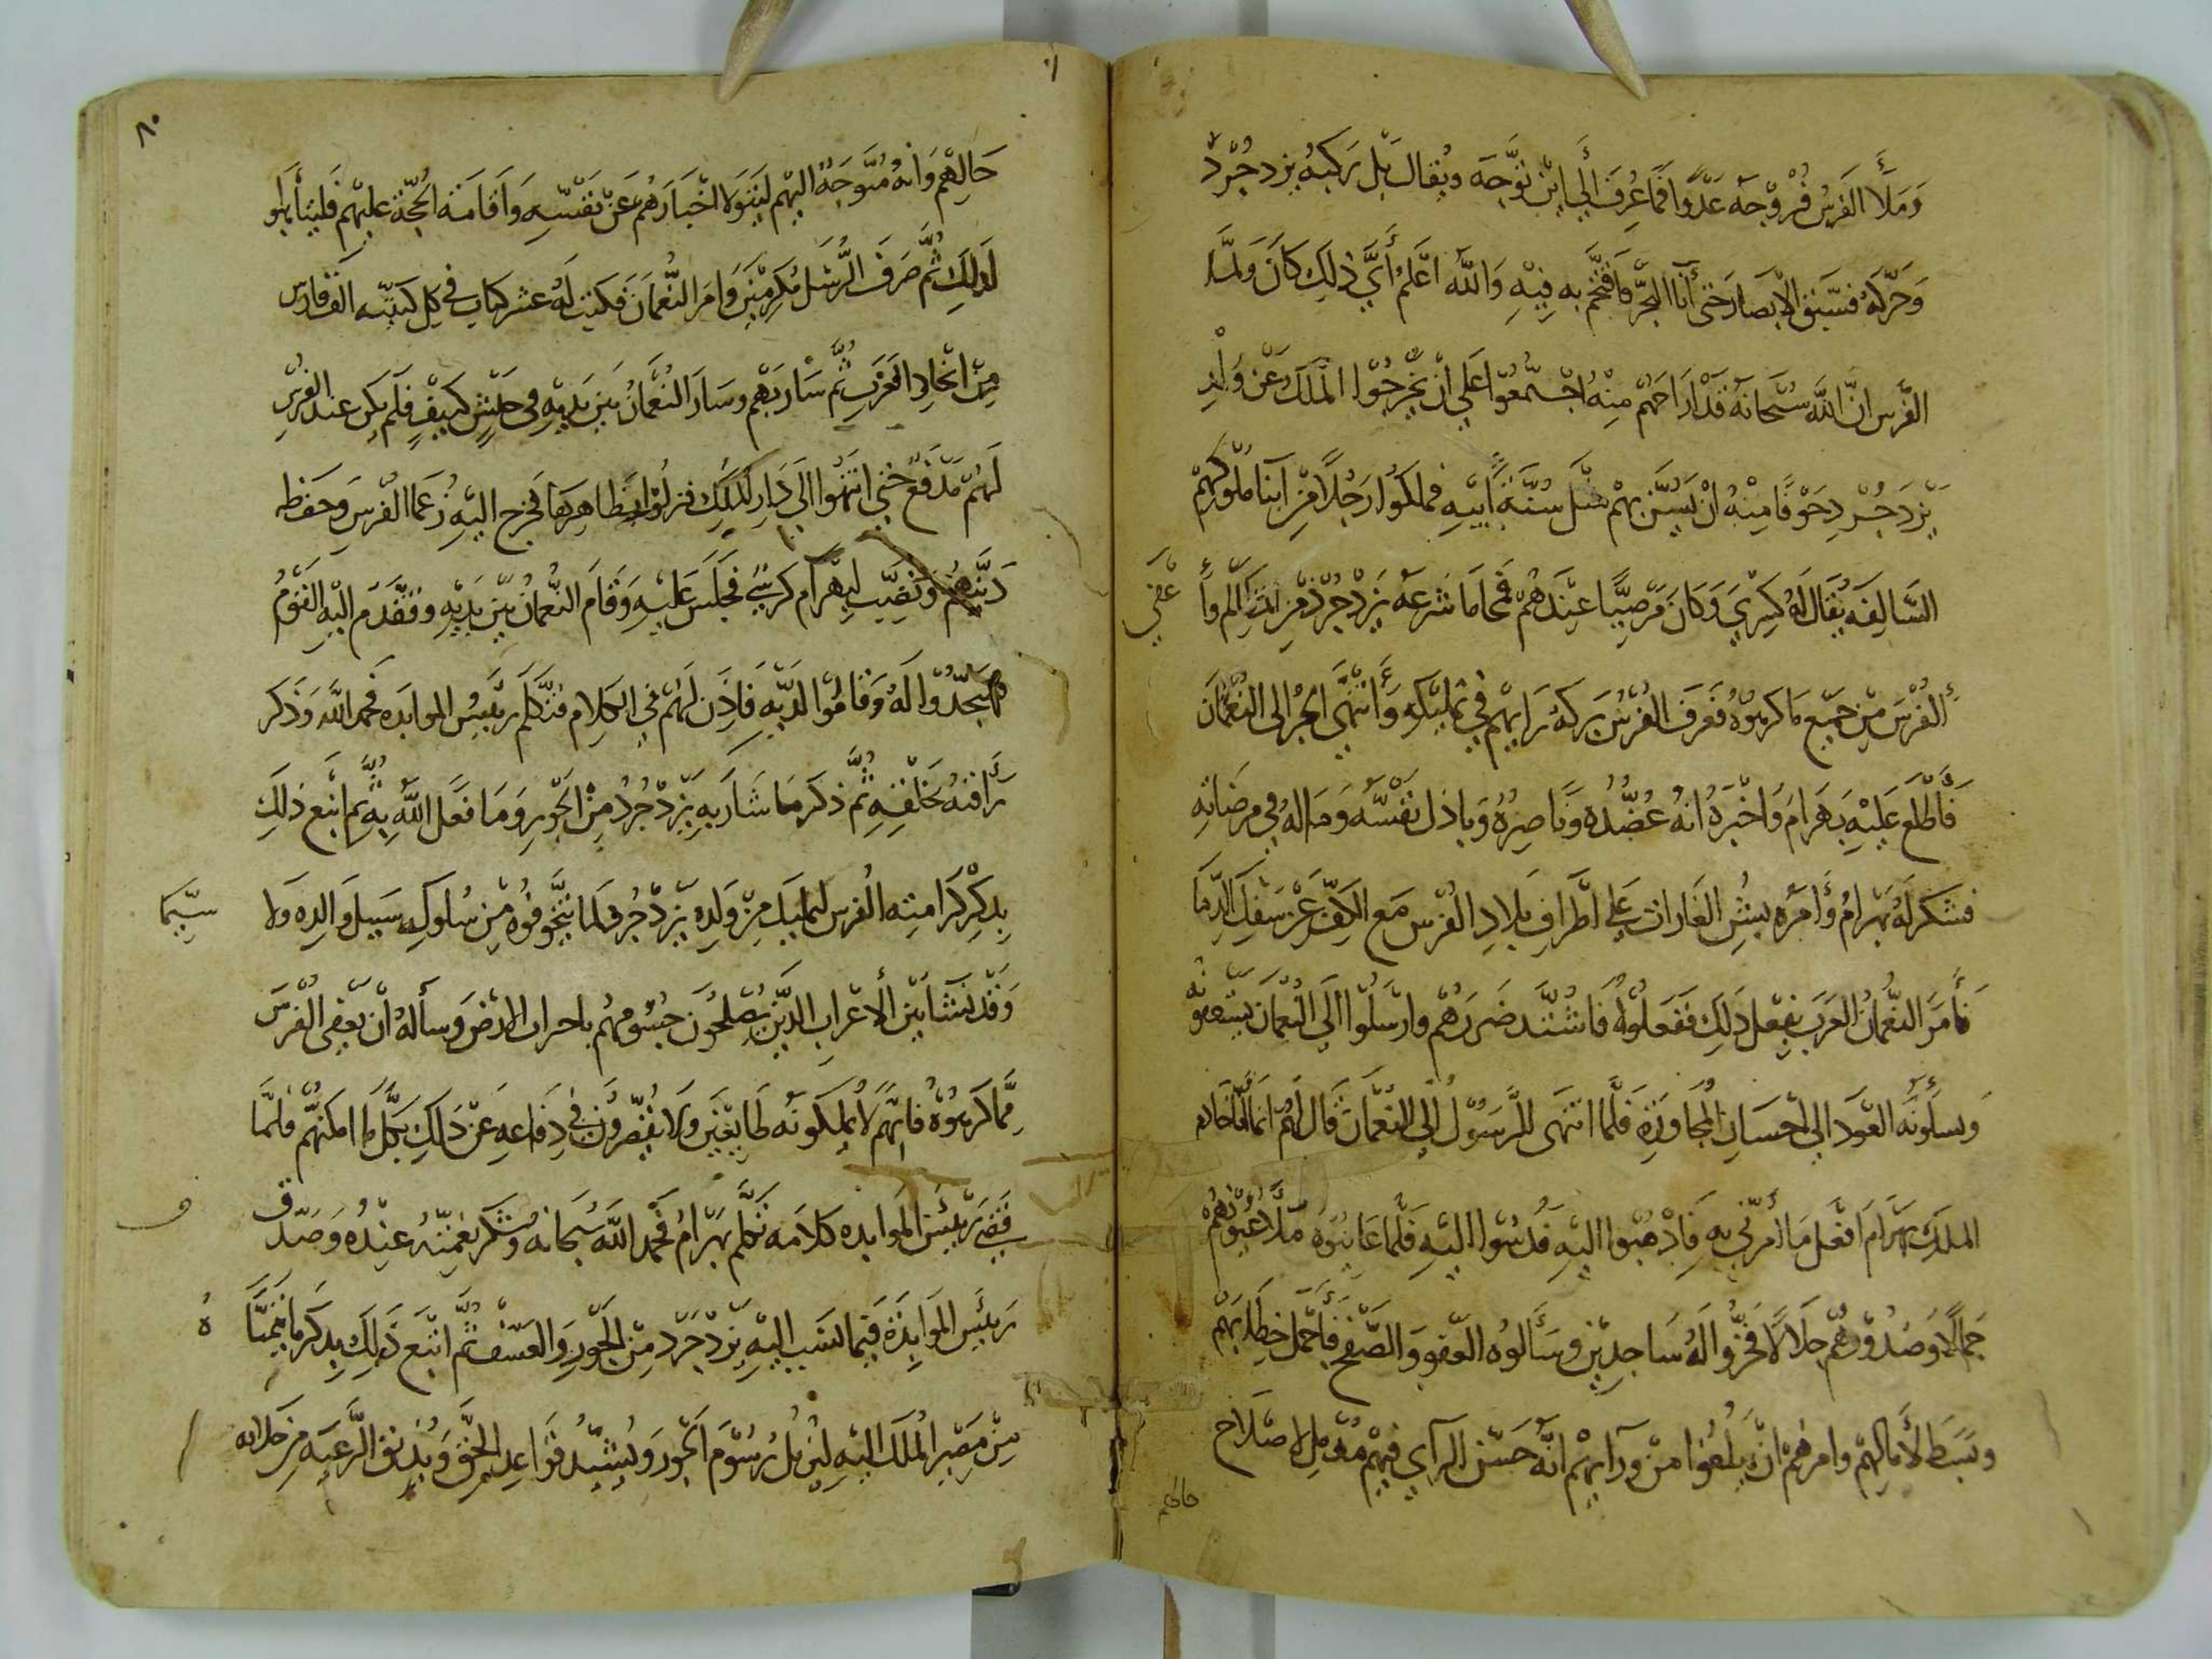 وَمَلَأَ الفَرَسُ فُرُوْجَهُ عَدْوًا فَمَا عُرِفَ إلى اين تَوَجَّهَ ويُقال بَل رَكبَهُ يزدجُرْد
وَحَرَّكَهُ فسَبَقَ الابصارَ حتى أتا البحرَ فاقتحَم به فِيْهِ وَاللّه اعْلمُ أَيَّ ذلِكَ كانَ وَلمّا
الفُرس انَّ اللّه سُبْحانَهُ قدْ اراحَهُم مِنْهُ اجْتمعُوا على ان يُخْرِجُوا المُلكَ عَنْ وَلدِ
يَزْدَجُرْدِ خَوْفًا مِنْهُ انْ يَسْتَنَّ بهمْ مثل سُنّةِ أَبيهِ فملكُوا رَجُلًا مِنْ ابنا مُلوكهمْ
السَّالِفَه يُقَال لَهُ كِسْرَي وَكان مَرْضِيًّا عِنْدَهُمْ فمحَا مَا شرعَه يَزْدَجُرْد مِن وأعفي
الفُرْسَ مِنْ جميع مَا كرهُوْهُ فَعَرَفَ الفُرْسُ بَركهُ رَايهم في تمليْكهِ وَأنتهَى الخبرُ الى النُعْمَانَ
فَأَطْلَعَ عَلَيْهِ بَهرامَ وَاخْبَرَهُ انهُ عَضُدُه وَنَاصِرُهُ وَباذل نفْسَهُ وَمَالهُ في مرضَاتِهِ
فشكَر لَهُ بَهْرامُ وَأَمرَه بشنِّ الغَارات عَلي اطْرافِ بلادِ الفُرْس مَع الكفِّ عَنْ سَفكِ الدِّمَا
فَأَمَرَ النُّعْمانُ العَرَبَ بفِعْل ذَلِكَ فَفَعَلُوْهُ فاشْتَدَّ ضَرَرهُمْ وارْسَلُوْا الَى النُعْمَانَ يَسْتعفونه
وَيسألُونَهُ العَوْدَ الي احْسَان المُجَاوَرَةِ فَلَمَّا انتهَى الرَّسُوْلُ الي النعْمَانَ قَال لَهُمْ انما أنا خادم
المَلكِ بَهْرامَ افعَل مَا أمرَني به فَاذْهبُوا اليْهِ فَدُسُوا اليْهِ فَلَمَّا عَاينُوهُ مَلأَ عُيُوْنَهُمْ
جَمَالًا وَصُدُوْرَهُمْ جلَالًا فَخَرُّوا لَهُ سَاجِدِيْن وَسَأَلُوْه العفو وَالصَّفْحَ فَأجْمل خِطَابَهُم
وبَسَط لآمَالهمْ وامرهُمْ انْ يبلغُوا مَنْ ورَآيَهُمْ انَّهُ حَسَن الرَّأي فيهِمْ لاصْلاح
حالهم
٨٠
حَالِهِمْ وَانهُ مُتوَجّهٌ اليْهِم ليتوَلا اخْبَارَهُمْ عَنْ نَفْسِهِ وَاقامَة الحُجّة عليْهم
لذلك ثُمَّ صَرَفَ الرُّسُل مُكرَمِيْنَ وَامَر النُعْمانَ فكتب لَهُ عشر كتايب في كل كتيبَه الف فارس
مِنْ انْجَادِ العَرَبِ ثُمَّ سَارَ بهْم وسَارَ النُعْمانُ بَيْن يَدَيْه في جَيْشٍ كثيفٍ فَلَم يكن عند الفُرْسِ
لَهُمْ مَدْفَعٌ حتي انتهُوا الي دَار المُلكِ فنزلُوْا بظاهِرهَا فخرج اليْهِ زُعَمَا الفُرْس وَحَفَظه
دَيْنهِمْ وَنُصِبَ لبَهْرَام كرسيٌّ فجَلَسَ عَلَيْهِ وَقامَ النُّعمانُ بَيْن يَدَيْهِ وَتقَدَّم اليْهِ القَوْمُ
فسَجَدُوْا لَهُ وَقامُوْا لدَيْهِ فاذِن لَهُمْ في الكلام فتكلمَ رَئيسُ الموابَده فَحَمد اللَّهَ وَذَكر
رَأفتهُ بخَلْقِهِ ثُمَّ ذكر مَا سَارَ بهِ يَزْدجُرْدُ مِن الجَوْرِ وَمَا فعَل اللّهُ بهِ ثُمَّ اتبَع ذلِكَ
بذِكْرِ كَرَاهِته الفُرس لتمليك مِنْ وَلدِه يَزْدْجُرْد لمَا يتخَوَّفُوْه مِنْ سُلوكِهِ سَبيل وَالِدِه وَلا سيّما
وَقدْ نشَأ بَيْن الاعْرابِ الذِيْنَ يُصْلِحُوْن جسُومهُم باحراب الارْضَ وسألهُ أنْ يُعْفِى الفُرْسَ
مِمَّا كَرهُوْهُ فانهُمْ لَا يملكونَه طَايعِيْنَ وَلَا يُقصِّرُوْنَ في دِفَاعِهِ عَنْ ذلكِ بكلِّ مَا امكنهُمْ فلمَّا
قضَي رَئيسُ المَوابده كلَامَه تكلَّم بَهْرامُ فحمِدَ اللّهَ سُبْحَانه وَشكرَ نِعْمَتهُ عِنْدُه وَصَدّق
رَئيسَ المَوَابِذَةَ فيَما نسَب اليْهِ يَزْدْجرْد مِنَ الجَّوْرِ وَالعَسْف ثُمَّ اتبَع ذَلِكَ بذِكْرِ مَا تمنّاهُ
مِنْ مَصِيْرِ المُلك اليْهِ ليُزيل رُسُوْمَ الجَوْر وَيُشَيِّدُ قوَاعِدَ الحَقِّ وَيُذِيقَ الرَّعيَه مِن حلاوه